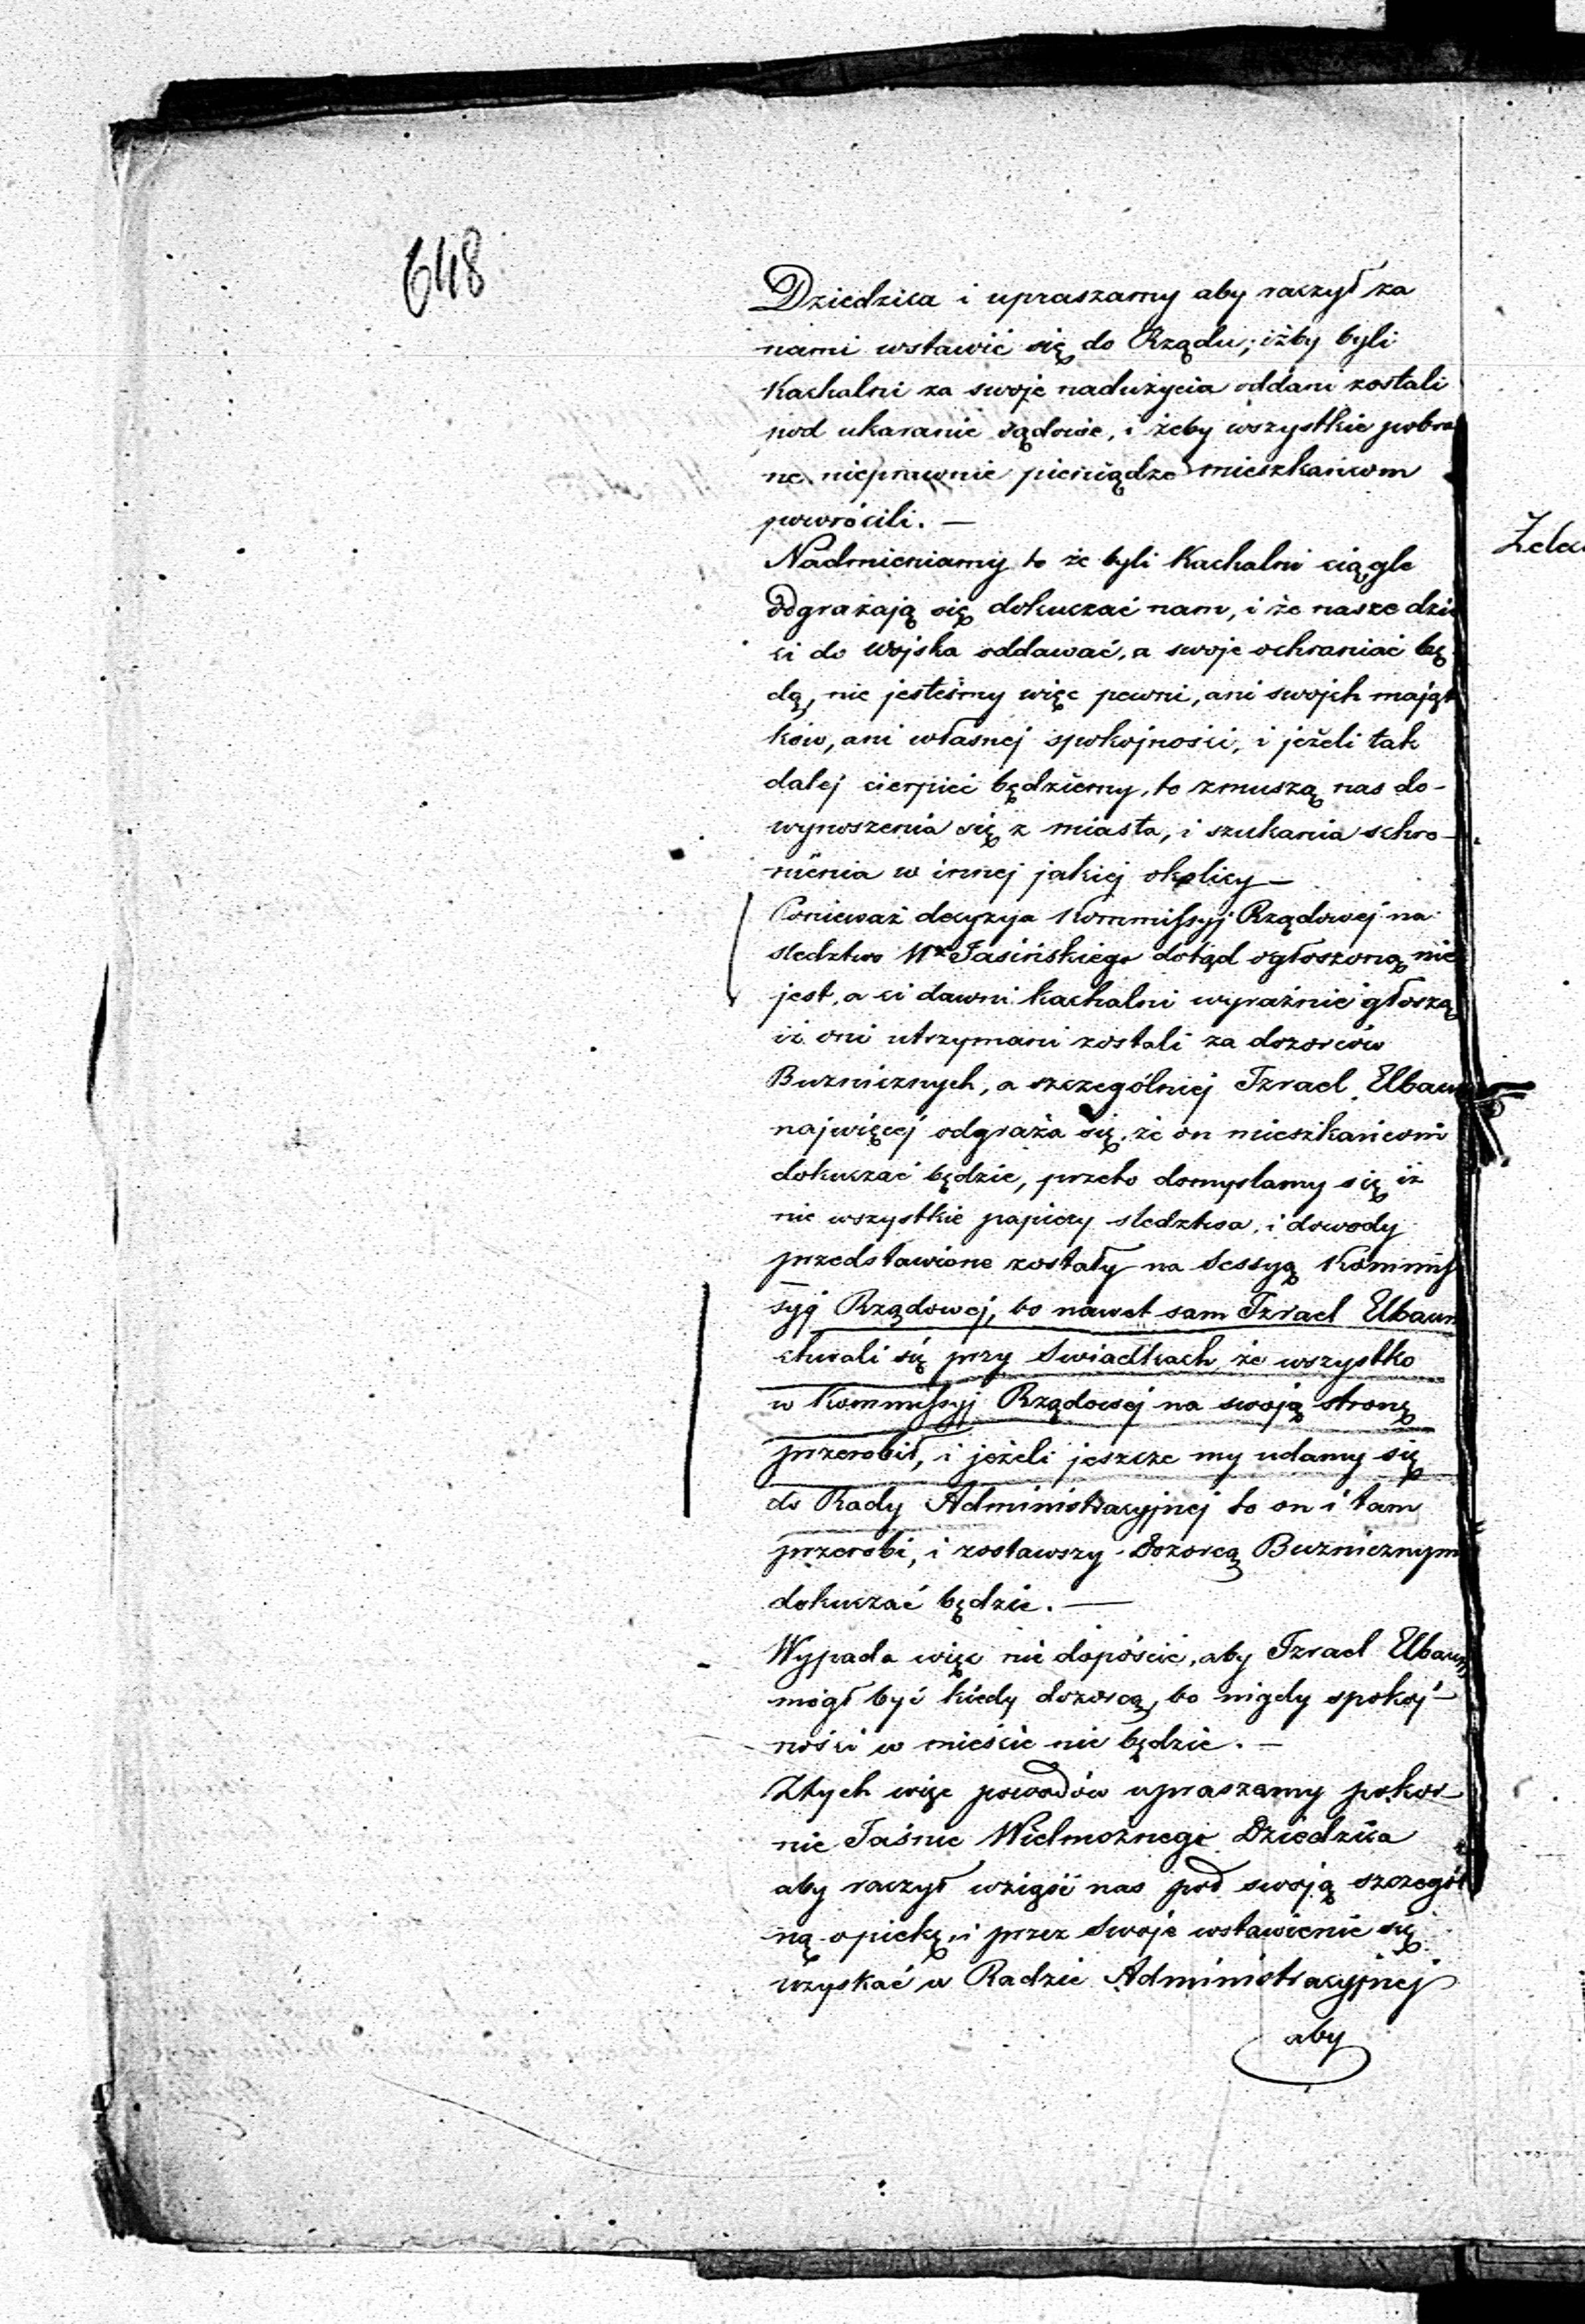 648
Dziedzica i upraszamy aby raczył za
nami wstawić się do Rządu; iżby byli
Kachalni za swoje nadużycia oddani zostali
pod ukaranie sądowe, i żeby wszystkie pobra
ne nieprawnie pieniądze mieszkańcom
powrócili. —
Nadmieniamy to że byli Kachalni ciągle
odgrażają się dokuczać nam, i że nasze dzie
ci do Wojska oddawać, a swoje ochraniać bę
dą, nie jesteśmy więc pewni, ani swojch mająt
ków, ani własnej spokojności, i jeżeli tak
dalej cierpieć będziemy, to zmuszą nas do-
wynoszenia się z miasta, i szukania schro-
nienia w innej jakiej okolicy —
Ponieważ decyzyja Kommissyj Rządowej na
sledztwo Wo Jasińskiego dotąd ogłoszoną nie
jest, a ci dawni kachalni wyraźnie głoszą
iż oni utrzymani zostali za dozorców
Buznicznych, a szczególniej Izrael Elbaum
najwięcej odgraża się, że on mieszkańcom
dokuczać będzie, przeto domyslamy się iż
nie wszystkie papiery sledztwa, i dowody
przedstawione zostały na Sessyą Kommis
syj Rządowej, bo nawet sam Izrael Elbaum
chwali się przy Swiadkach, że wszystko
w Kommissyj Rządowej na swoją stronę
przerobił, i jeżeli jeszcze my udamy się
do Rady Administracyjnej to on i tam
przerobi, i zostawszy Dozorcą Buznicznym
dokuczać będzie. —
Wypada więc nie dopóścić, aby Izrael Elbaum
mógł być kiedy dozorcą, bo nigdy spokoj-
ności w mieście nie będzie. —
Ztych więc powodów upraszamy pokor-
nie Jaśnie Wielmożnego Dziedzica
aby raczył wziąść nas pod swoją szczegól
ną opiekę, i przez Swoje wstawienie się
uzyskać w Radzie Administracyjnej
aby